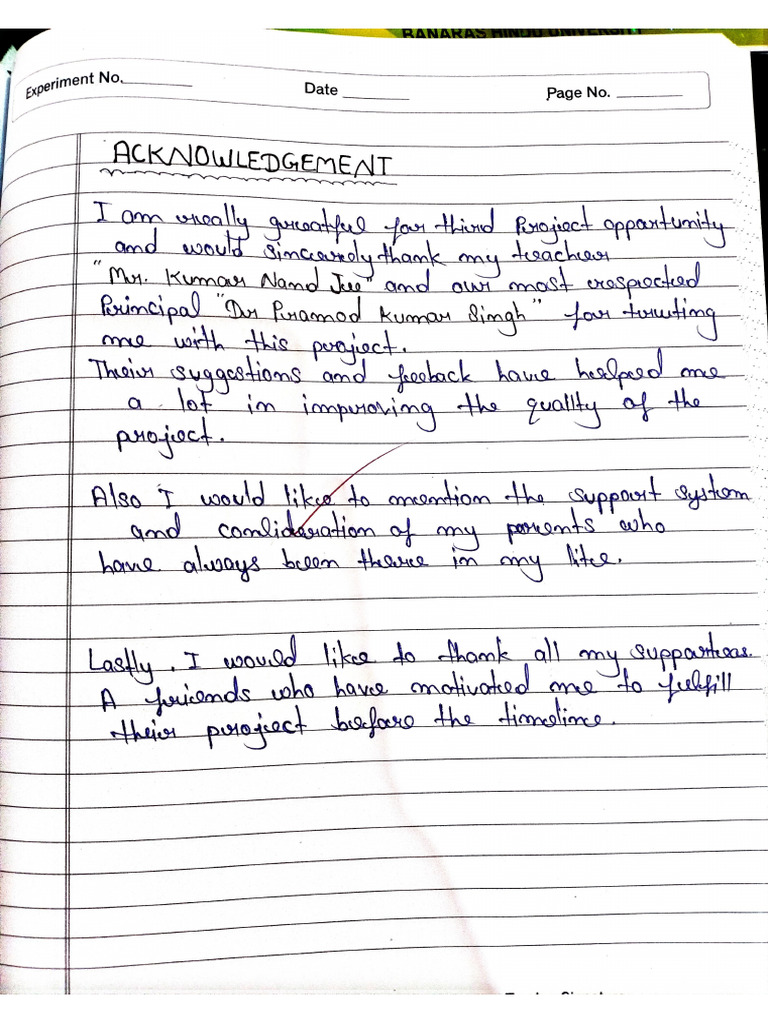 BANARAS HINDU UNIVERSITY
Experiment No.
Date
Page No.
ACKNOWLEDGEMENT
I am really greatful for third Project opportunity
and would sincerely thank my teacher
"Mr. Kumar Nand Jee" and our most respected
Principal "Dr Pramod Kumar Singh" for trusting
me with this project.
Their suggestions and feeback have helped me
a lot in improving the quality of the
project.
Also I would like to mention the support system
and consideration of my parients who
have always been there in my lite.
Lastly, I would like to thank all my supporters.
A friends who have motivated me to fulfill
their project before the timeline.